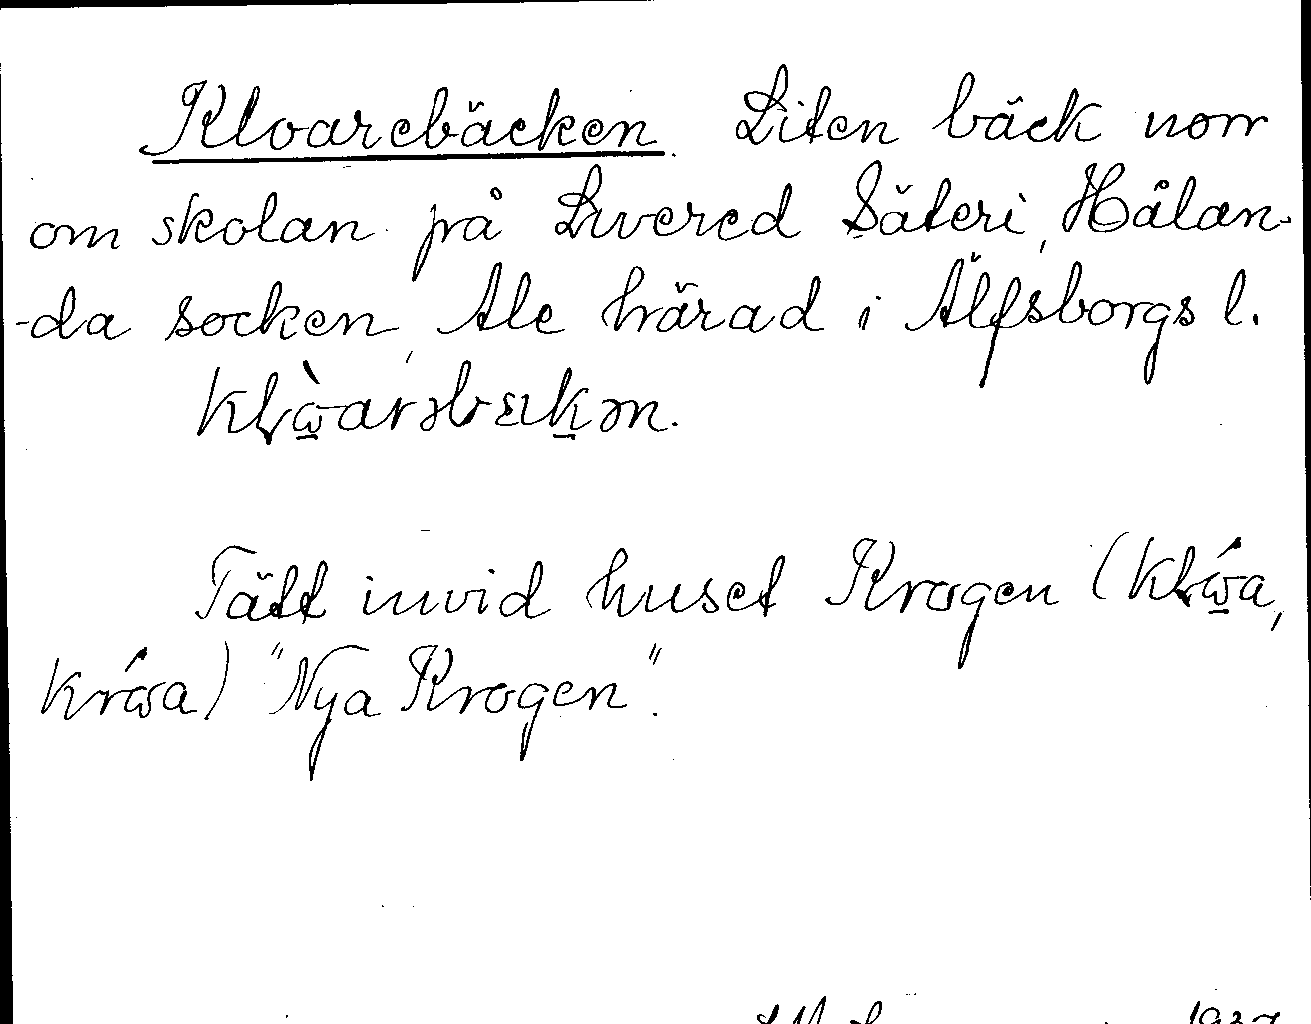 Kloarebäcken. Liten bäck norr
om skolan på Livered Säteri, Hålan-
-da socken, Ale härad i Älfsborgs l.
Tätt invid huset Krogen (
) "Nya Krogen".